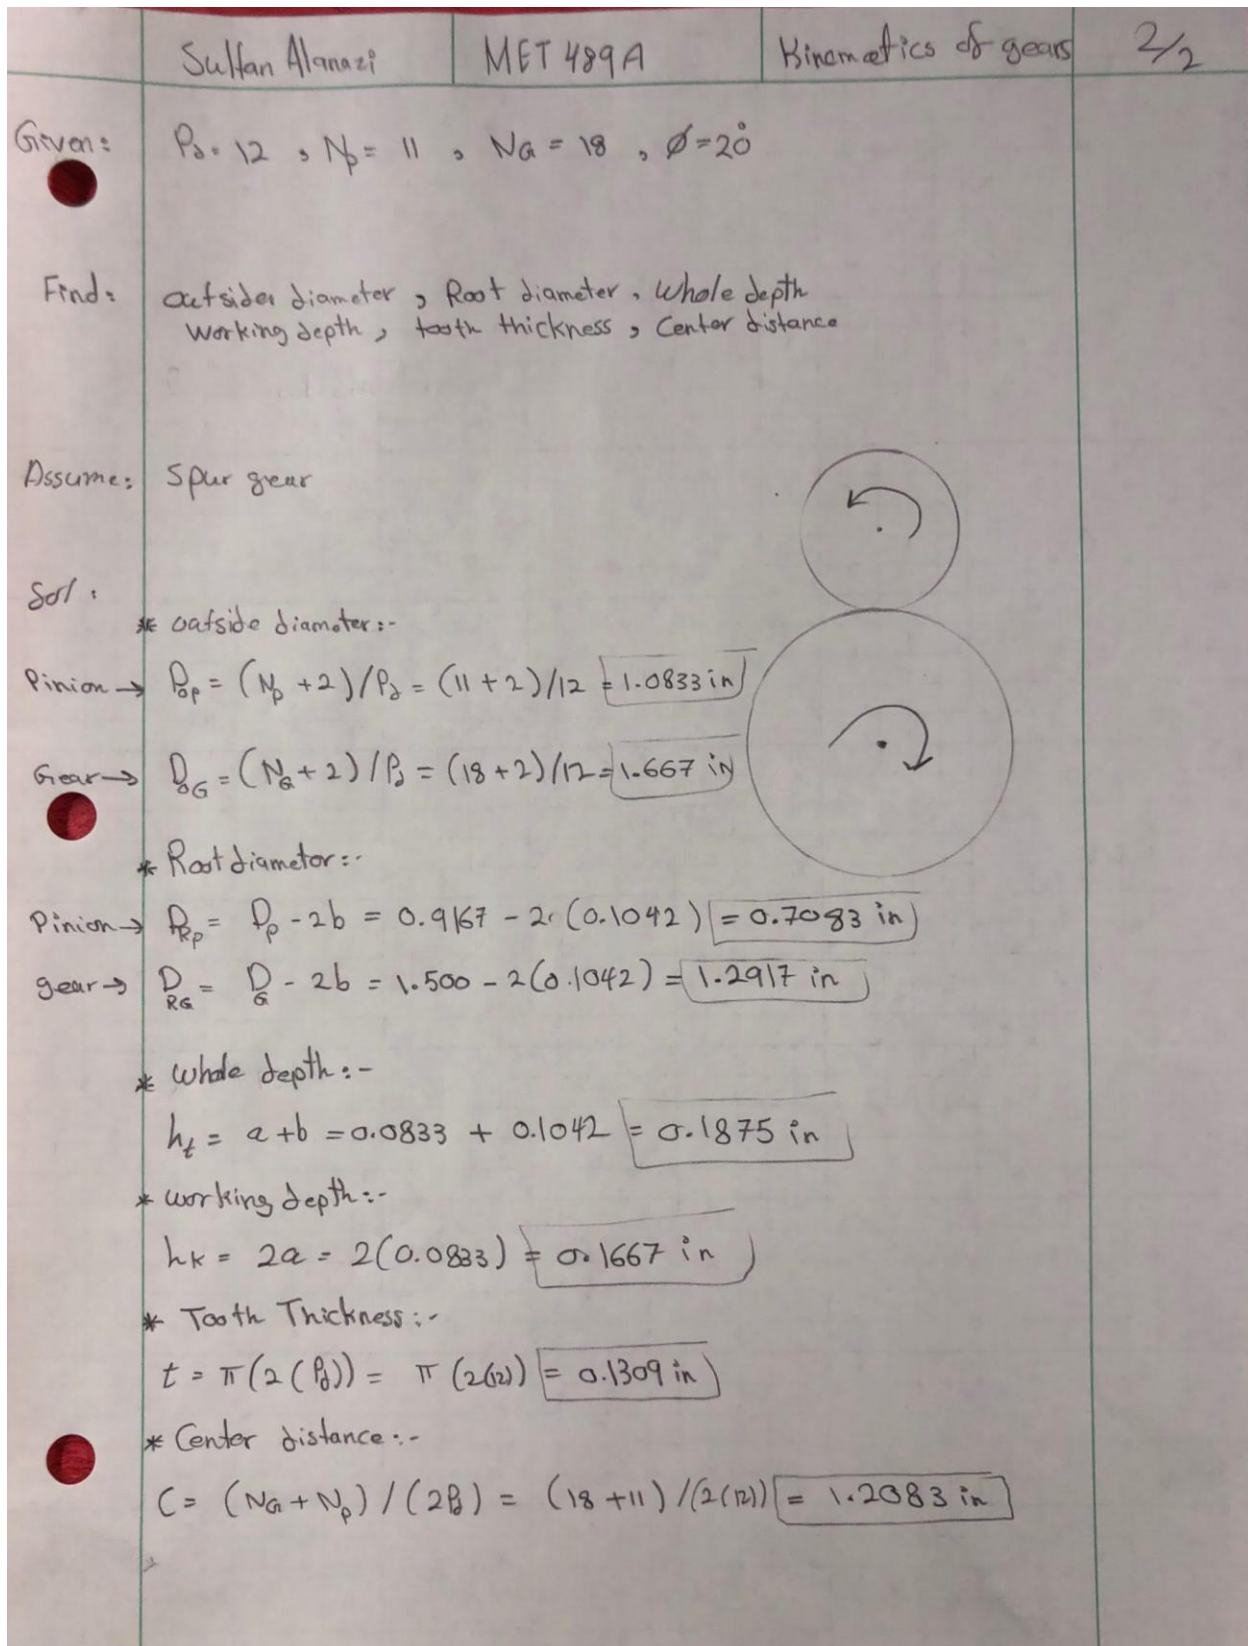 Sultan Alanazi MET 489A Kinematics of gears 2/2
Given: Pd = 12 , Np = 11 , NG = 18 , Ø = 20°
Find: outsider diameter , Root diameter , Whole depth
Working depth , tooth thickness , Center distance
Assume: Spur gear
Sol :
* outside diameter :-
Pinion → Dop = (Np + 2)/Pd = (11 + 2)/12 = 1.0833 in
Gear → DoG = (NG + 2)/Pd = (18 + 2)/12 = 1.667 in
* Root diameter :-
Pinion → DRp = Dp - 2b = 0.9167 - 2(0.1042) = 0.7083 in
gear → DRG = DG - 2b = 1.500 - 2(0.1042) = 1.2917 in
* Whole depth :-
ht = a + b = 0.0833 + 0.1042 = 0.1875 in
* working depth :-
hk = 2a = 2(0.0833) = 0.1667 in
* Tooth Thickness :-
t = π(2(Pd)) = π(2(12)) = 0.1309 in
* Center distance :-
C = (NG + Np) / (2Pd) = (18 + 11) / (2(12)) = 1.2083 in